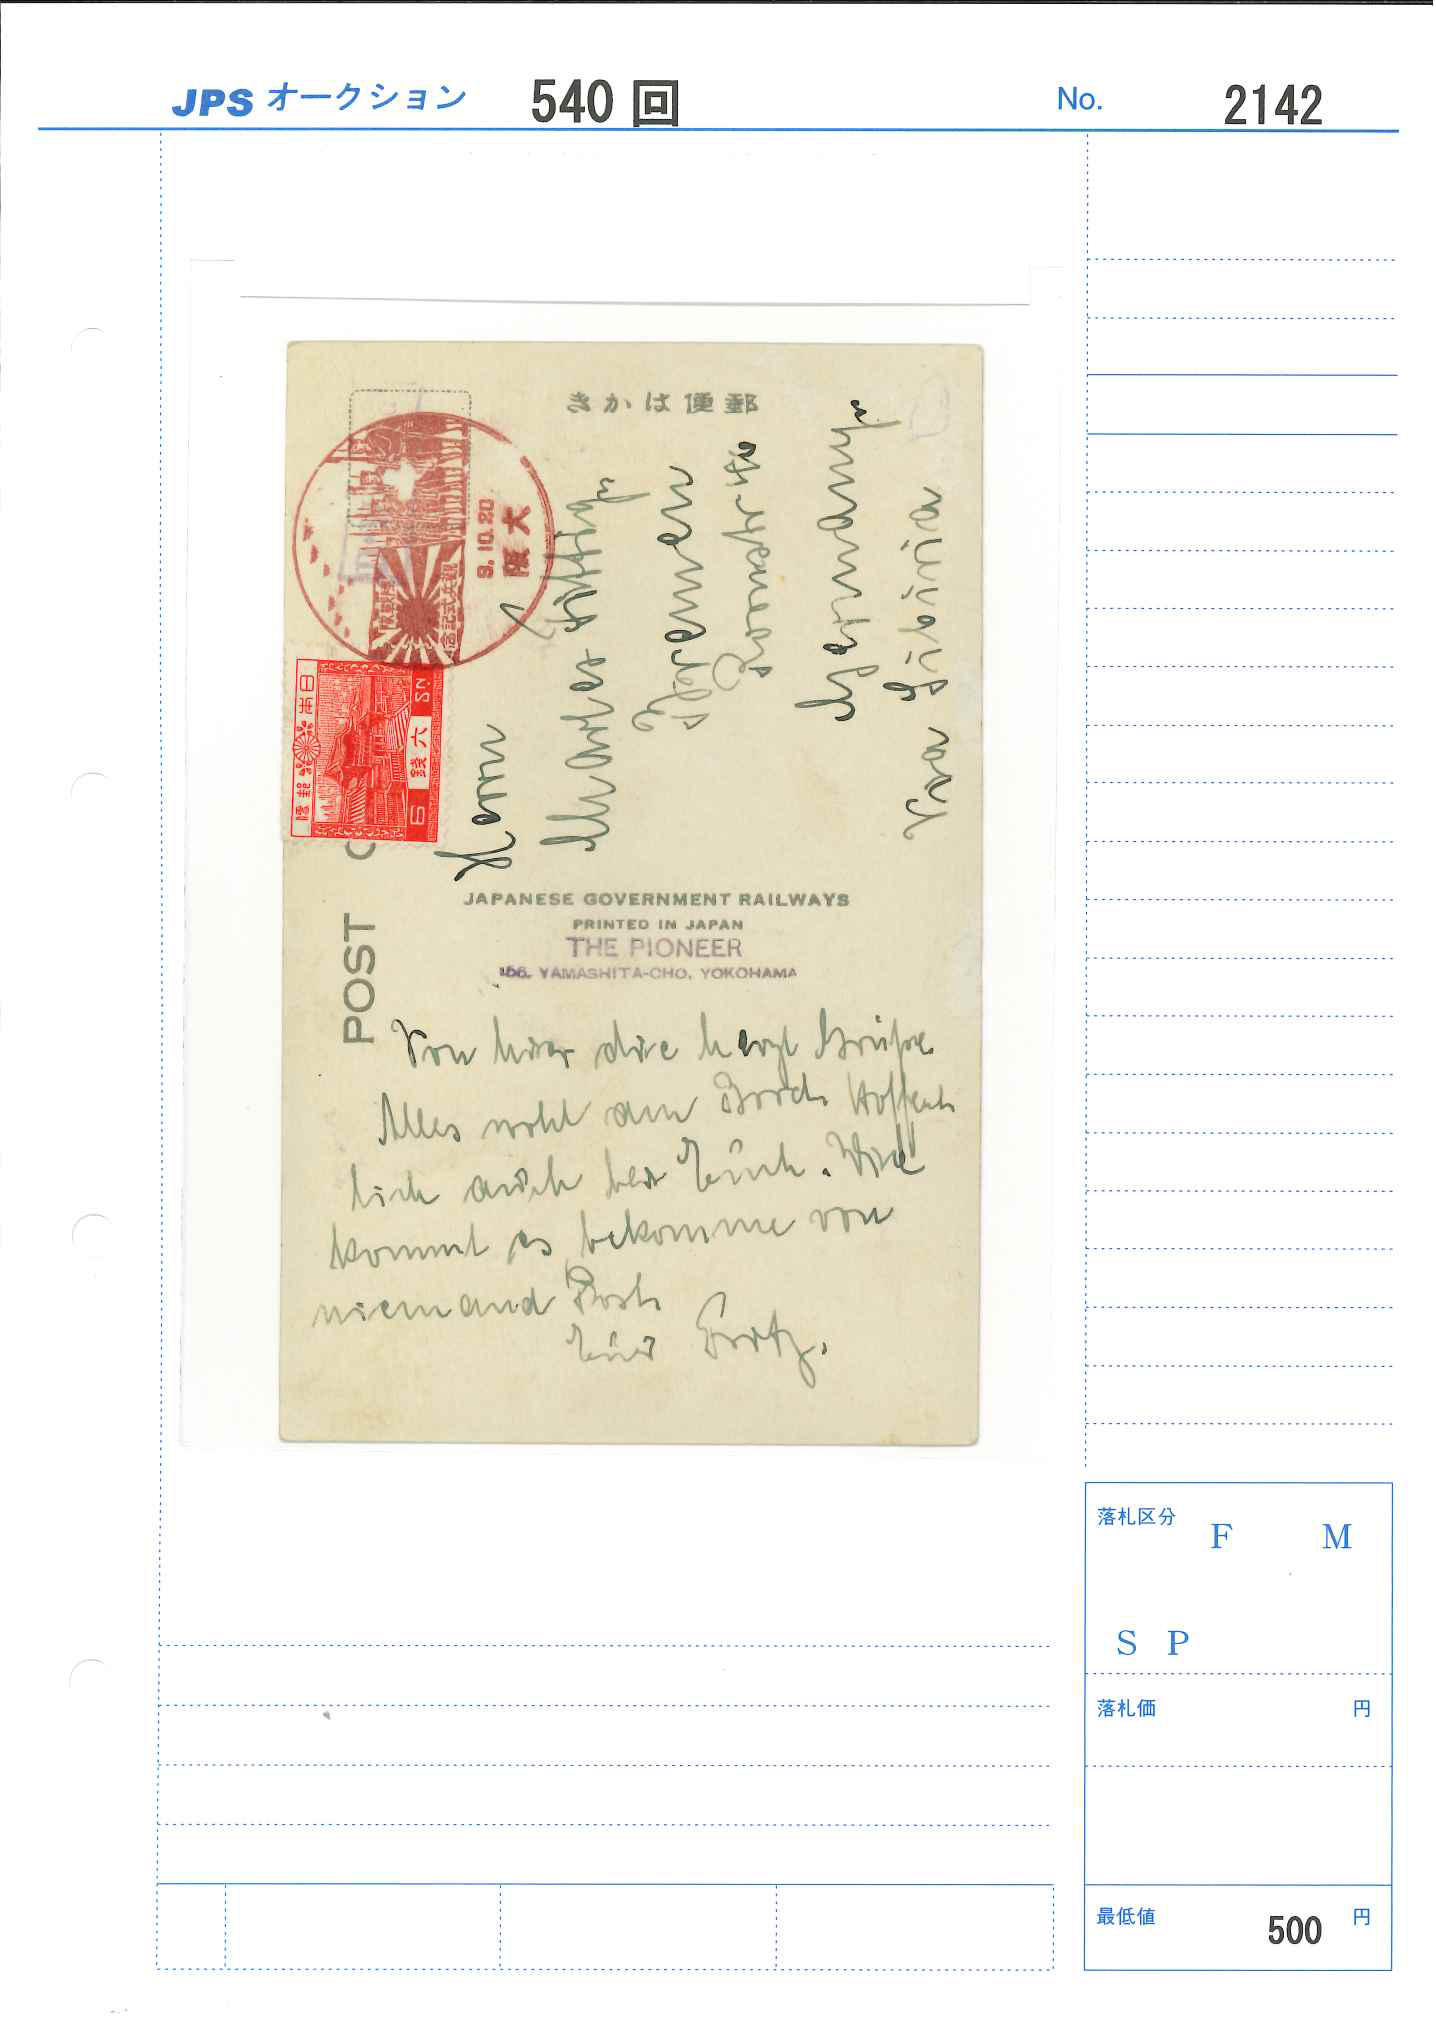 JPS オークション 540 回 No. 2142
郵便はかき
大阪
9.10.20
観兵式記念
日本郵便
六銭
6 SN.
POST C
Herrn
Bremen
Germany
via Sibiria
JAPANESE GOVERNMENT RAILWAYS
PRINTED IN JAPAN
THE PIONEER
156. YAMASHITA-CHO, YOKOHAMA
Von hier die herzl Grüße
Alles wohl an Bord. Hoffent
lich auch bei Euch. Wie
kommt es bekomme von
niemand Post.
Euer Fritz.
落札区分 F M
S P
落札価 円
最低値 500 円